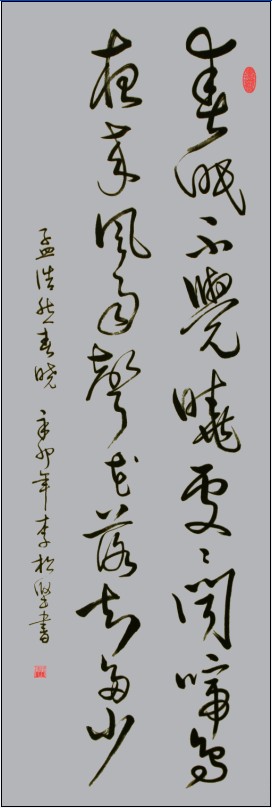 春眠不覺曉處〻聞啼鳥
夜來風雨聲花落知多少
孟浩然春曉 辛卯年李松堅書